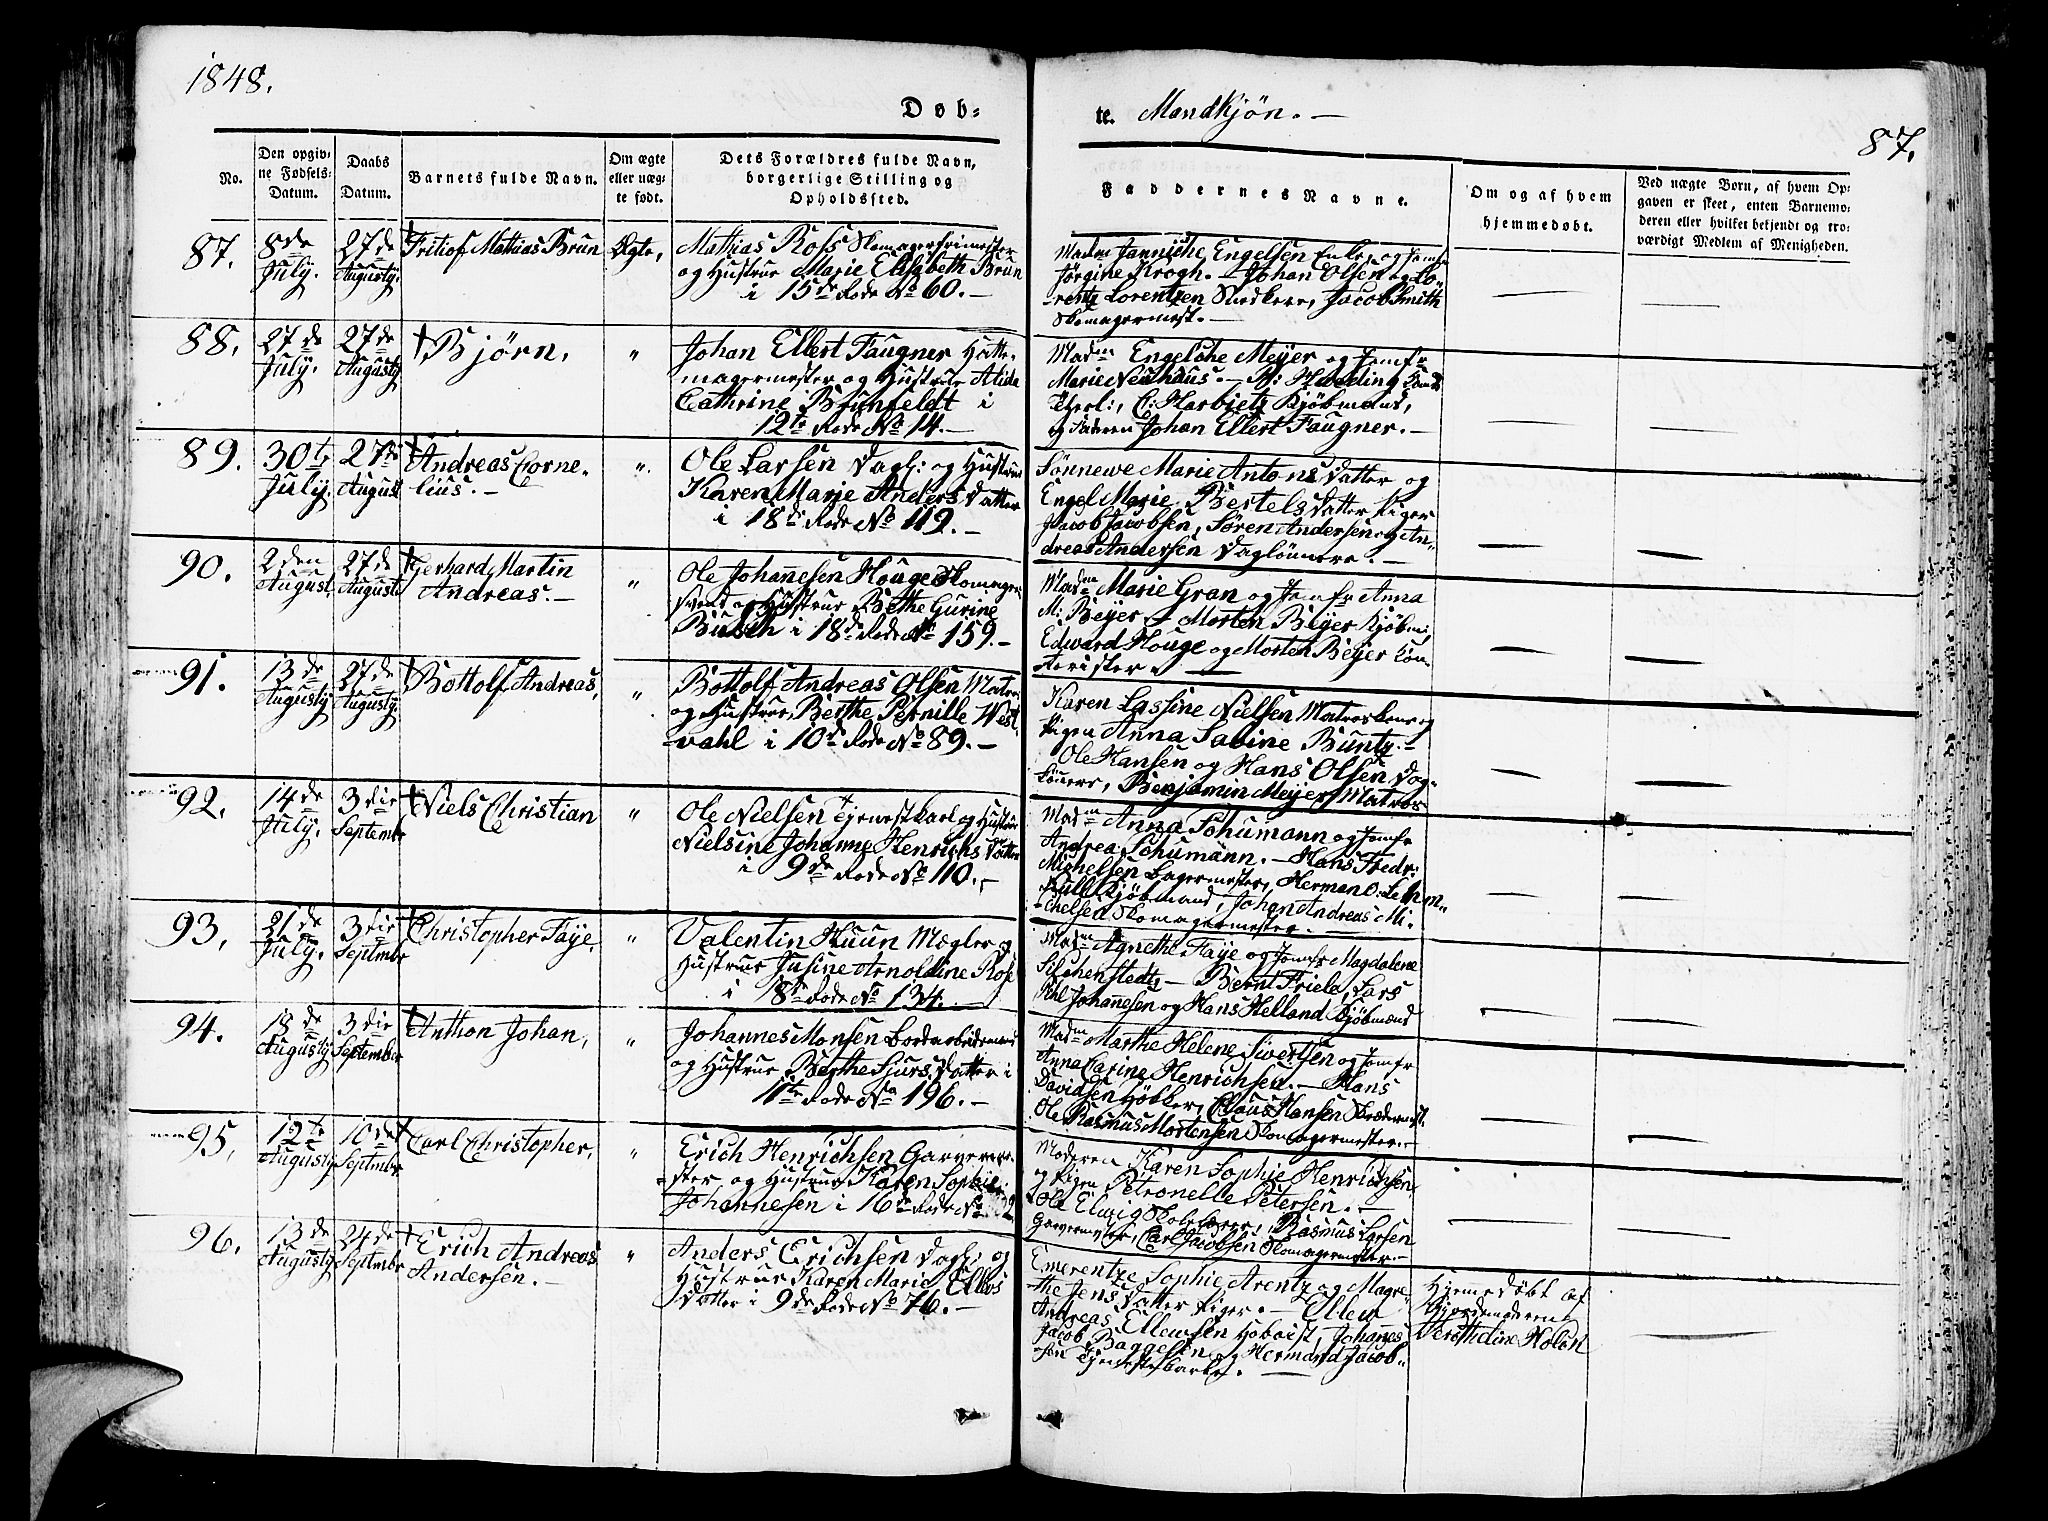 1848.
Døb=
te. Mandkjøn. —
87.
No.
Den opgiv=
ne Fødsels=
Datum.
Daabs
Datum.
Barnets fulde Navn.
Om ægte
eller uæg=
te født.
Dets Forældres fulde Navn,
borgerlige Stilling og
Opholdssted.
Faddernes Navne.
Om og af hvem
hjemmedøbt.
Ved uægte Børn, af hvem Op=
gaven er skeet, enten Barnemo=
deren eller hvilket bekjendt og tro=
værdigt Medlem af Menigheden.
87.
8de
July.
27de
Augusty.
Fritiof Mathias Brun
Ægte,
Mathias Ross Skomagerfrimester
og Hustrue Marie Elisabeth Brun
i 15de Rode No 60. —
Madme Janniche Engelsen Enke, og Jomfr
Jørgine Krogh. — Johan Olsen og Lo=
rentz Lorentzen Snedkere, Jacob Smith
Skomagermest. —
88.
27de
July.
27de
Augusty
Bjørn,
"
Johan Ellert Faugner Hatte=
magermester og Hustrue Alida
Cathrine Brunfeldt i
12te Rode No 14. —
Madm Engelche Meyer og Jomfr
Marie Neuhaus. — B: Hvoding
C: Harbietz Kjøbmænd,
og Faderen Johan Ellert Faugner. —
89.
30te
July.
27de
August
Andreas Corne=
lius. —
".
Ole Larsen Dagl: og Hustrue
Karen Marie Anders Datter
i 18de Rode No 119. —
Sønnewe Marie Antons Datter og
Engel Marie Bertels Datter Piger
Jacob Jacobsen, Søren Andersen og An=
dreas Andersen Daglønnere. —
90.
2den
August.
27de
Augusti
Gerhard Martin
Andreas. —
"
Ole Johannesen Houge Skomager
svend og Hustrue Bethe Gurine
Busch i 18de Rode No 159. —
Madm Marie Gran og Jomfr Anna
M: Beyer — Morten Beyer Kjøbm:
Edward Houge og Morten Beyer Con=
torister. —
91.
13de
Augusty
27de
Augusty.
Bottolf Andreas,
"
Bottolf Andreas Olsen Matros
og Hustrue, Berthe Pernille West
vahl i 10de Rode No 89. —
Karen Lassine Nielsen Matroskone og
Pigen Anna Sabine Buntz. —
Ole Hansen og Hans Olsen Dag=
lønnere, Benjamin Meyer Matros
92.
14de
July.
3die
Septembr
Niels Christian
"
Ole Nielsen Tjenestkarl og Hustrue
Nielsine Johanne Henrichs Datter
i 9de Rode No 110. —
Madm Anna Schumann og Jomfr
Andrea Schumann. — Hans Fredr:
Michelsen Lagermester, Herman D: Lehm=
kull Kjøbmand, Johan Andreas Mi=
chelsen Skomagermester. —
93.
21de
July.
3die
Septembr
Christopher Faye,
"
Valentin Huun Mægler og
Hustrue Jusine Arnoldine Rose
i 18de Rode No 134. —
Madm Agnethe Faye og Jomfr Magdalene
Selchenstedt, — Bernt Friele, Lars
Johannesen og Hans Helland Kjøbmænd
94.
18de
Augusty
3die
September
Anthon Johan,
"
Johannes Monsen Bordarbeidsmand
og Hustrue Berthe Sjurs Datter i
11te Rode No 196. —
Madm Marthe Helene Sivertsen og Jomfr
Anna Carine Henrichsen. — Hans
Davidsen Høkker, Claus Hansen Skrædermest.
Ole Rasmus Mortensen Skomagermester. —
95.
12te
Augusty
10de
Septembr
Carl Christopher,
"
Erich Henrichsen Garverme=
ster og Hustrue Karen Sophie
Johannesen i 16de Rode No
Moderen Karen Sophie Henrichsen
og Pigen Petronelle Petersen. —
Ole Elwig Skolelærer, Rasmus Larsen
Garvermester, Carl Jacobsen Skomagermester. —
96.
13de
Augusty
24de
Septembr
Erich Andreas
Andersen. —
"
Anders Erichsen Dagl: og
Hustrue Karen Marie Ellevs
Datter i 9de Rode No 76. —
Emerentze Sophie Arentz og Magre=
the Jens Datter Piger. — Ellew
Andreas Ellewsen Hoboist, Johannes
Jacob Baggesen og Hermand Jacob=
sen Tjenestekarle. —
Hjemedøbt af
Gjordemoderen
Berethe Line Holen